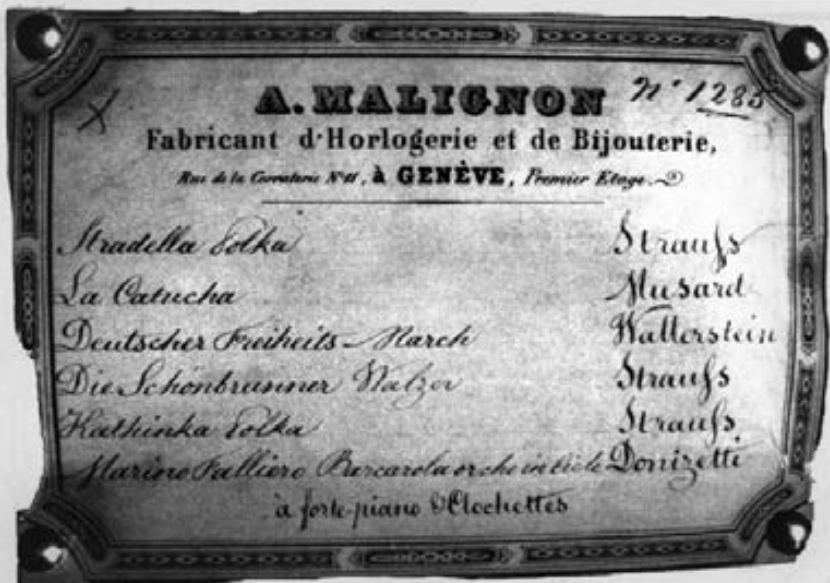 A. MALIGNON
N° 1285
Fabricant d'Horlogerie et de Bijouterie,
Rue de la Corraterie N° 11, à GENÈVE, Premier Etage.
Stradella Polka Straufs
La Catucha Musard
Deutscher Freiheits-March Wallerstein
Die Schönbrunner Walzer Straufs
Kathinka Polka Straufs
Marino Falliero Barcarola or che in Donizetti
à forte-piano & Clochettes